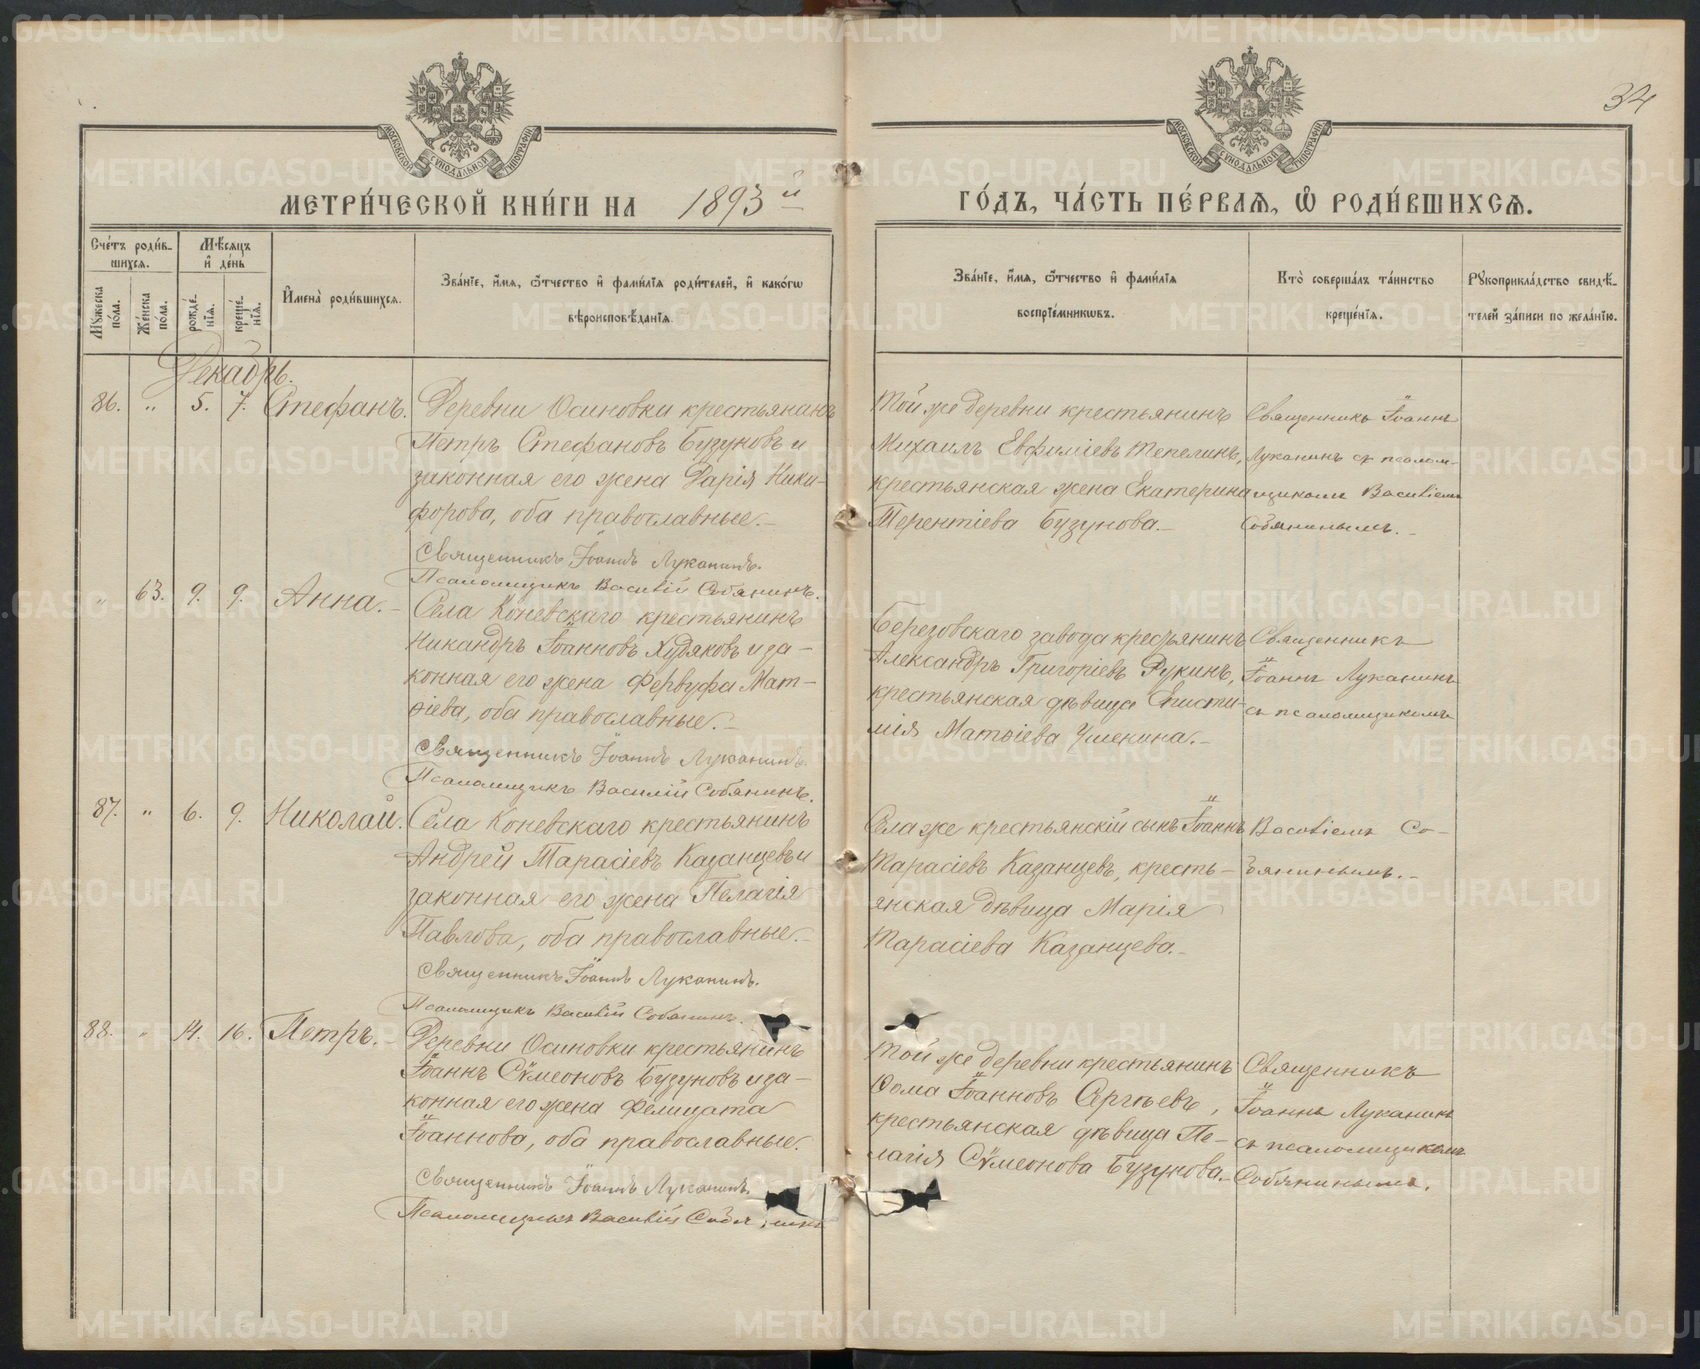 34
МОСКОВСКОЙ СѴНОДАЛЬНОЙ ТИПОГРАФІИ
МОСКОВСКОЙ СѴНОДАЛЬНОЙ ТИПОГРАФІИ
МЕТРИ́ЧЕСКОЙ КНИ́ГИ НА 1893й
ГО́ДЪ, ЧА́СТЬ ПЕ́РВАѦ, Ѡ РОДИ́ВШИХСѦ.
Сче́тъ роди́в-
шихсѧ.
Мꙋ́жеска по́ла.
Же́нска по́ла.
Мѣ́сѧцъ и҆ де́нь
рожде́-нїѧ.
креще́-нїѧ.
И҆мена̀ роди́вшихсѧ.
Зва́нїе, и҆́мѧ, ѻ҆́тчество и҆ фами́лїѧ роди́телей, и҆ како́гѡ
вѣроисповѣ́данїѧ.
Зва́нїе, и҆́мѧ, ѻ҆́тчество и҆ фами́лїѧ
воспрїе́мникѡвъ.
Кто̀ соверша́лъ та́инство
креще́нїѧ.
Рꙋкоприкла́дство свидѣ́-
телей за́писи по жела́нїю.
Декабрь.
86. " 5. 7. Стефанъ.
Деревни Осиновки крестьянинъ
Петръ Стефановъ Бузуновъ и
законная его жена Дарія Ники-
форова, оба православные.
Священникъ Іоаннъ Луканинъ.
Псаломщикъ Василій Собянинъ.
Той же деревни крестьянинъ
Михаилъ Евфиміевъ Тепелинъ,
крестьянская жена Екатерина
Терентіева Бузунова.
Священникъ Іоаннъ
Луканинъ съ псалом-
щикомъ Василіемъ
Собянинымъ.
" 63. 9. 9. Анна.
Села Коневскаго крестьянинъ
Никандръ Іоанновъ Худяковъ и за-
конная его жена Фервуфа Мат-
ѳіева, оба православные.
Священникъ Іоаннъ Луканинъ.
Псаломщикъ Василій Собянинъ.
Березовскаго завода крестьянинъ
Александръ Григоріевъ Рукинъ,
крестьянская дѣвица Еписти-
мія Матѳіева Ушенина.
Священникъ
Іоаннъ Луканинъ
съ псаломщикомъ
87. " 6. 9. Николай.
Села Коневскаго крестьянинъ
Андрей Тарасіевъ Казанцевъ и
законная его жена Пелагія
Павлова, оба православные.
Священникъ Іоаннъ Луканинъ.
Псаломщикъ Василій Собянинъ.
Села же крестьянскій сынъ Іоаннъ
Тарасіевъ Казанцевъ, кресть-
янская дѣвица Марія
Тарасіева Казанцева.
Василіемъ Со-
бянинымъ.
88. " 14. 16. Петръ.
Деревни Осиновки крестьянинъ
Іоаннъ Сѷмеоновъ Бузуновъ и за-
конная его жена Фелицата
Іоаннова, оба православные.
Священникъ Іоаннъ Луканинъ
Псаломщикъ Василій Собянинъ
Той же деревни крестьянинъ
Ѳома Іоанновъ Сергѣевъ,
крестьянская дѣвица Пе-
лагія Сѷмеонова Бузунова.
Священникъ
Іоаннъ Луканинъ
съ псаломщикомъ
Собянинымъ.
METRIKI.GASO-URAL.RU